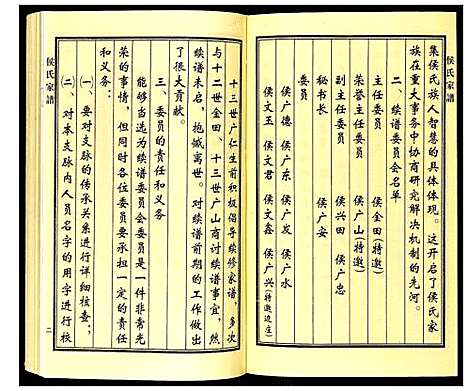 侯氏家谱
集侯氏族人智慧的具体体现。这开启了侯氏家
族在重大事务中协商研究解决机制的先河。
二、续谱委员会名单
主任委员 侯金田（特邀）
荣誉主任委员 侯广山（特邀）
副主任委员 侯兴田 侯广忠
秘书长 侯广安
委员
侯广德 侯广东 侯广友 侯广水
侯文玉 侯文君 侯文鑫 侯广兴（特邀边庄）
十三世广仁生前积极倡导续修家谱，多次
与十二世金田、十三世广山商讨续谱事宜，然
续谱未启，抱憾离世。对续谱前期的工作做出
了很大贡献。
三、委员的责任和义务
能够当选为续谱委员会委员是一件非常光
荣的事情，但同时各位委员要承担一定的责任
和义务：
（一）、要对支脉的传承关系进行详细核查；
（二）、对本支脉内人员名字的用字进行校
侯氏家谱
二